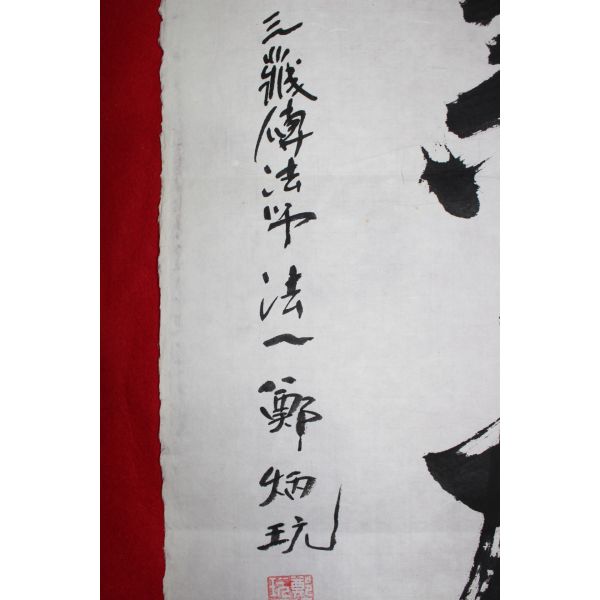 三藏傳法師 法一 鄭炳玩